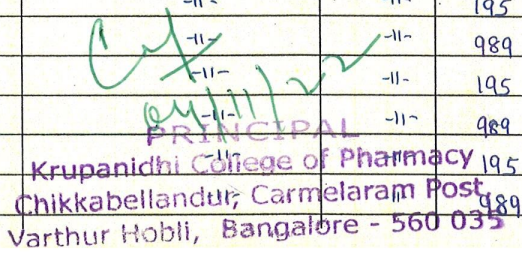 -11- 195
-11- -11- 989
-11- -11- 195
04/11/22
-11- -11- 989
PRINCIPAL
Krupanidhi College of Pharmacy 195
Chikkabellandur, Carmelaram Post, 989
Varthur Hobli, Bangalore - 560 035